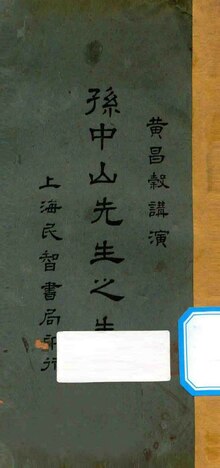 黃昌穀講演
孫中山先生之生
上海民智書局印行